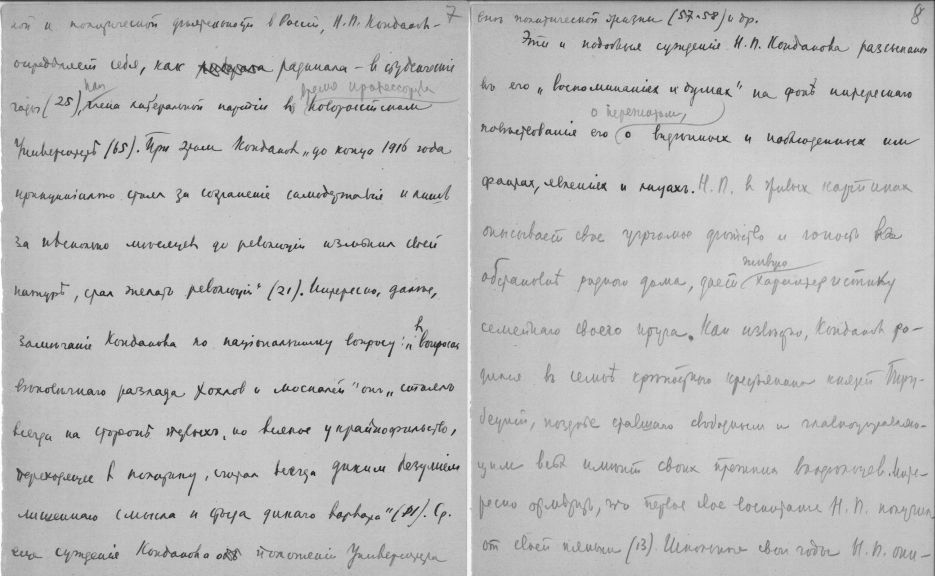 7
ной и политической деятельности в Россіи, Н.П. Кондаков
определяет себя, как радикала – в студенческіе
годы (25), как члена либеральной партіи въ время профессуры Новороссійском
Университетѣ (65). При этом Кондаков „до конца 1916 года
принципіально стоял за сохраненіе самодержавія и лишь
за нѣсколько мѣсяцев до революціи измѣнил своей
натурѣ, стал желать революціи" (21). Интересно, далѣе,
замѣчаніе Кондакова по національному вопросу: „в вопросах
вѣковѣчнаго разлада хохлов и москалей" он „стоял
всегда на сторонѣ первых, но всякое украйнофильство,
переходящее в политику, считал всегда диким безуміем
лишеннаго смысла и стыда дикаго варвара" (81). Ср.
еще сужденіе Кондакова об положеніи Университета
8
политической жизни (57-58) и др.
Эти и подобныя сужденія Н.П. Кондакова разсыпаны
въ его „воспоминаніях и думах" на фонѣ интереснаго
повѣствованія его о пережитом, о видѣнных и наблюденных им
фактах, явленіях и лицахъ. Н.П. в живых картинах
описывает свое дѣтство и юность
обстановкѣ роднаго дома, дает живую характеристику
семейнаго своего круга. Как извѣстно, Кондаков ро-
дился въ семьѣ крѣпостного крестьянина князей Тру-
бецких, позднѣе ставшаго свободным и главноуправляю-
щим всѣх имѣній своих прежних владѣльцев. Инте-
ресно отмѣтить, что первое свое воспитаніе Н.П. получил
от своей няньки (13). Школьные свои годы Н.П. опи-